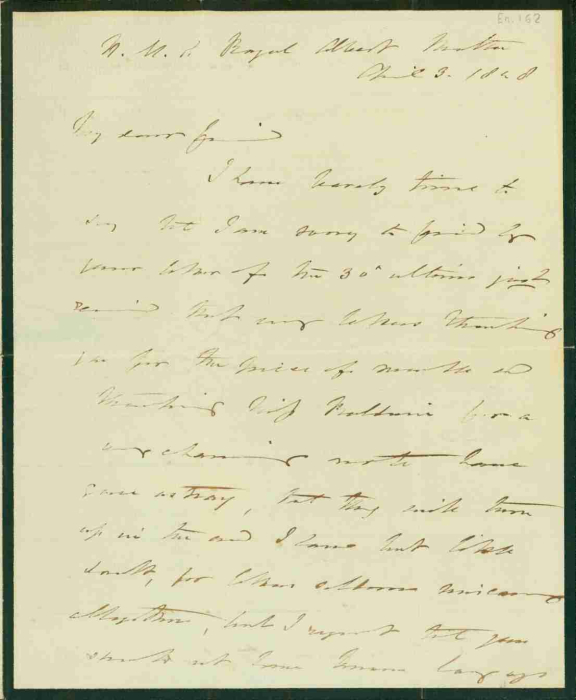 En. 162
H. M. S. Royal Albert Malta
April 3. 18 8
My dear friend
I have barely time to
say that I am sorry to find by
your letter of the 30th ultimo just
received that my letters thanking
you for the piece of marble and
thanking Miss for a
very charming note have
gone astray, but they will turn
up in the end I have but little
doubt, for letters seldom miscarry
altogether, but I regret that you
should not have known long ago